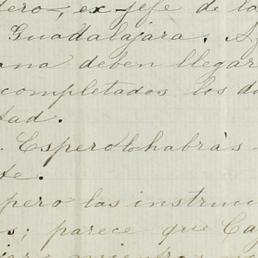 dero, ex-jefe de la
Guadalajara. A
ana deben llegar
completados los d
dad.
. Espero lo habrás
te.
pero las instruc
s; parece que Ca